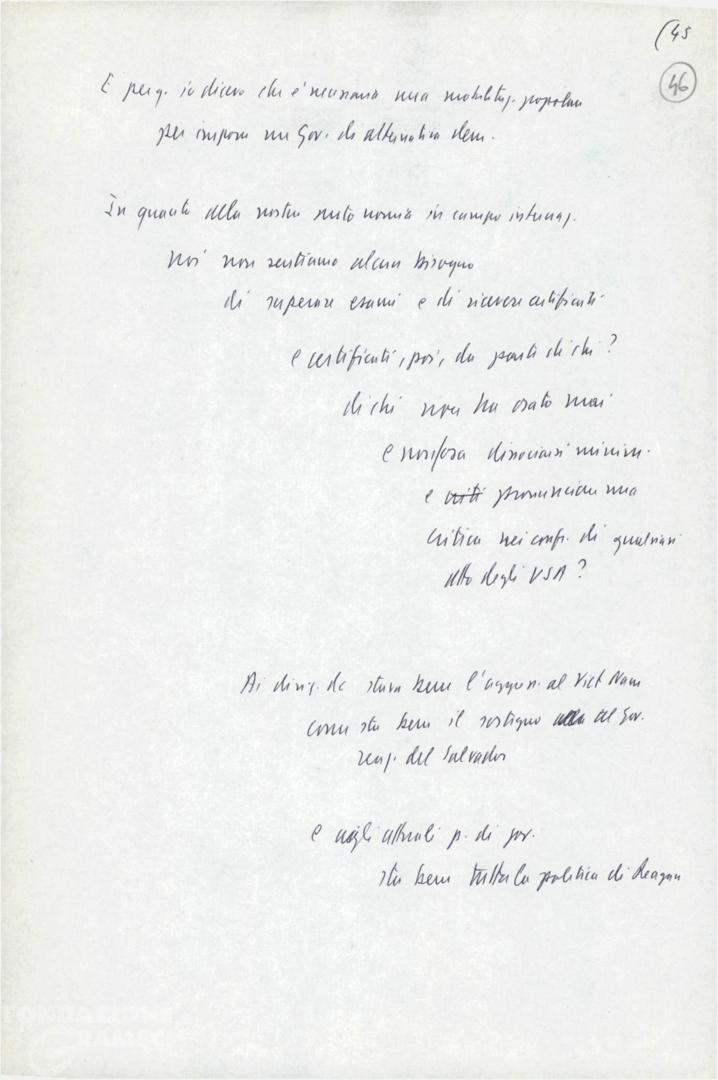 (45
46
E per q. io dicevo che è necessaria una mobilitaz. popolare
per imporre un Gov. di alternativa dem.
In quanto alla nostra autonomia in campo internaz.
noi non sentiamo alcun bisogno
di superare esami e di ricevere certificati
e certificati, poi, da parte di chi?
di chi non ha osato mai
e non osa dissociarsi minim.
e pronunciare una
critica nei confr. di qualsiasi
atto degli USA?
Ai dirig. dc stava bene l'aggress. al Viet Nam
come sta bene il sostegno al Gov.
reaz. del Salvador
e agli attuali p. di gov.
sta bene tutta la politica di Reagan
FONDAZIONE
GRAMSCI